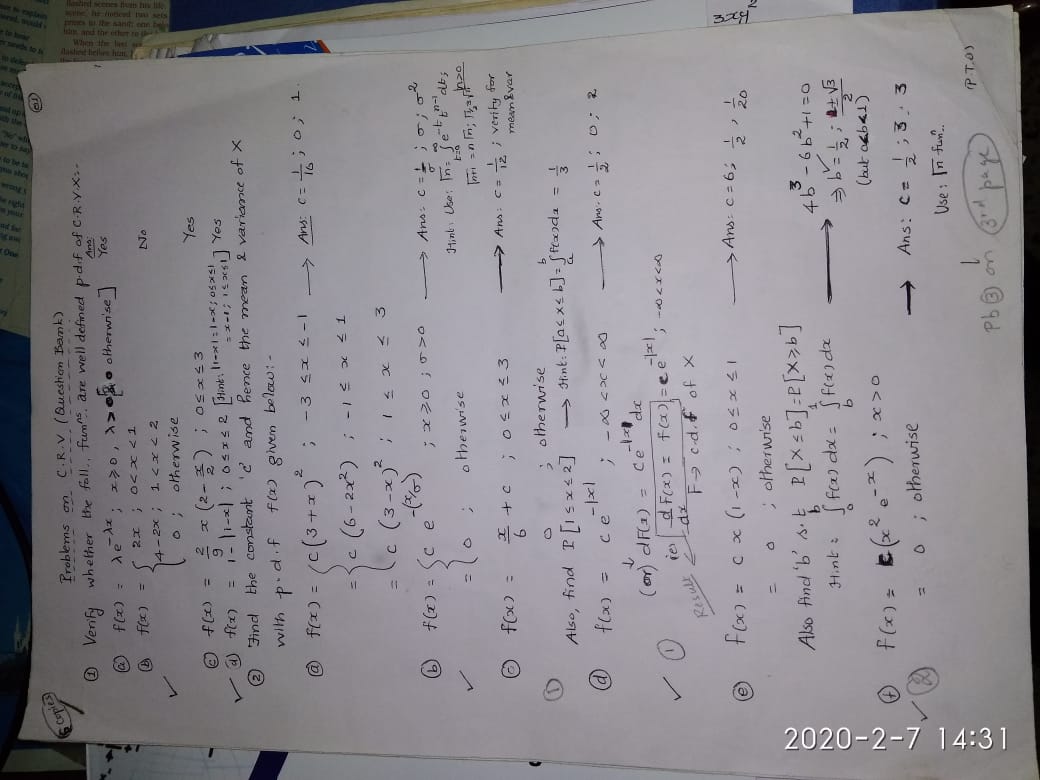 5 copies
01
Problems on C.R.V (Question Bank)
① Verify whether the foll.. funⁿˢ. are well defined p.d.f of C.R.V X:-
Ans:
ⓐ f(x) = λe^(-λx) ; x≥0, λ>0 [0 otherwise] Yes
ⓑ f(x) = { 2x ; 0<x<1 No
4-2x ; 1<x<2
0 ; otherwise
ⓒ f(x) = 2/9 x (2 - x/2) ; 0≤x≤3 Yes
ⓓ f(x) = 1-|1-x| ; 0≤x≤2 [Hint: |1-x|=1-x; 0≤x≤1 = x-1; 1≤x≤1] Yes
② Find the constant 'c' and hence the mean & variance of X
with p.d.f f(x) given below:-
ⓐ f(x) = { c(3+x)² ; -3 ≤x ≤-1 → Ans: c=1/16 ; 0 ; 1.
= { c (6-2x²) ; -1 ≤ x ≤ 1
= { c (3-x)² ; 1 ≤ x ≤ 3
ⓑ f(x) = { c e^(-(x/σ)) ; x≥0 ; σ>0 → Ans: c=1/σ ; σ ; σ²
= { 0 ; otherwise Hint: Use: Γn = ∫_(t=0)^∞ e^(-t) t^(n-1) dt; n>0
Γn+1 = n Γn; Γ1/2=√π
ⓒ f(x) = x/6 + c ; 0≤x≤3 → Ans: c = 1/12 ; verify for
mean&var
0 ; otherwise
① Also, find P[1≤x≤2] → Hint: P[a≤x≤b]=∫_a^b f(x)dx = 1/3
ⓓ f(x) = c e^(-|x|) ; -∞<x<∞ → Ans. c=1/2 ; 0 ; 2
(or) dF(x) = ce^(-|x|) dx
① ie) d/dx F(x) = f(x) =ce^(-|x|) ; -∞<x<∞
Result F→ c.d.f of X
ⓔ f(x) = c x (1-x) ; 0≤x≤1 → Ans: c=6; 1/2, 1/20
= 0 ; otherwise
Also find 'b' s.t P[X≤b]=P[X≥b]
4b³-6b²+1=0
Hint: ∫_0^b f(x)dx = ∫_b^1 f(x)dx → ⇒ b=1/2 ; (1±√3)/2
(but 0<b<1)
ⓕ f(x) = c(x² e^(-x)) ; x>0
② = 0 ; otherwise → Ans: c= 1/2 ; 3 ; 3
Use: Γn funⁿ..
(P.T.O)
↓
Pb ③ on 3rd page
2020-2-7 14:31